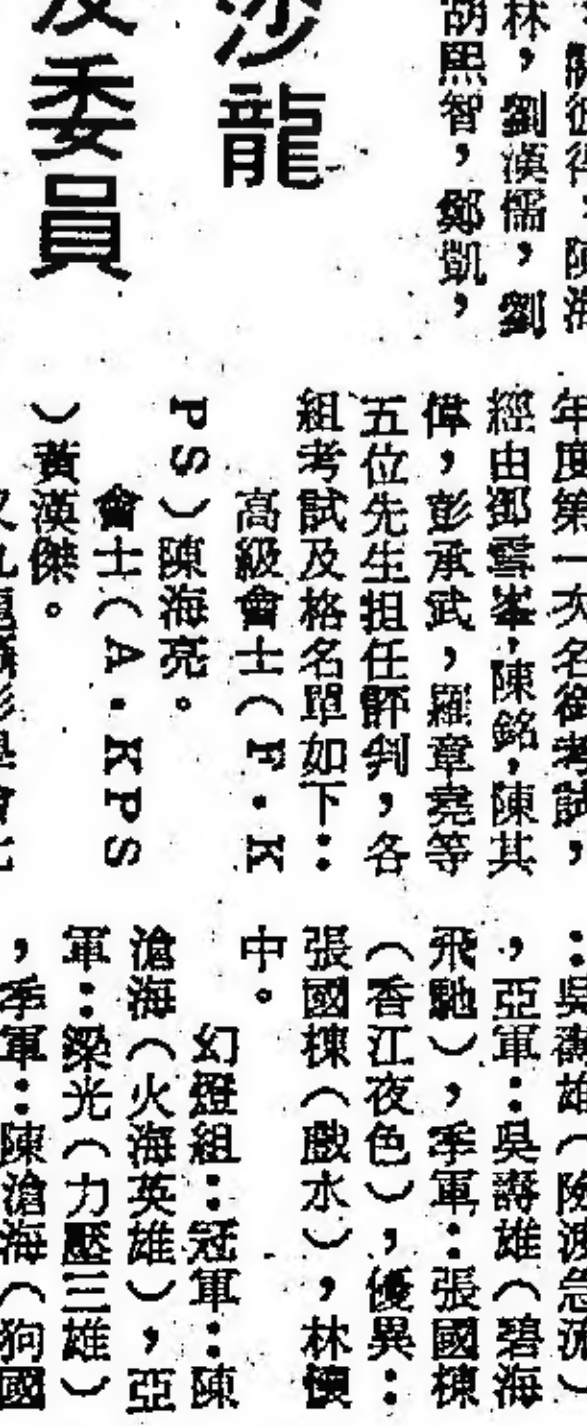 沙龍
委員
林，劉漢儒，劉
胡煕智，鄭凱，
年度第一次名銜考試，
經由鄧雪峯，陳銘，陳其
偉，彭承武，羅章堯等
五位先生担任評判，各
組考試及格名單如下：
高級會士（F．K
PS）陳海亮。
會士（A．KPS
）黃漢傑。
：吳壽雄（險波急流）
，亞軍：吳壽雄（碧海
飛馳），季軍：張國棟
（香江夜色），優異：
張國棟（戲水），林
中。
幻燈組：冠軍：陳
滄海（火海英雄），亞
軍：梁光（力壓三雄）
，季軍：陳滄海（狗國